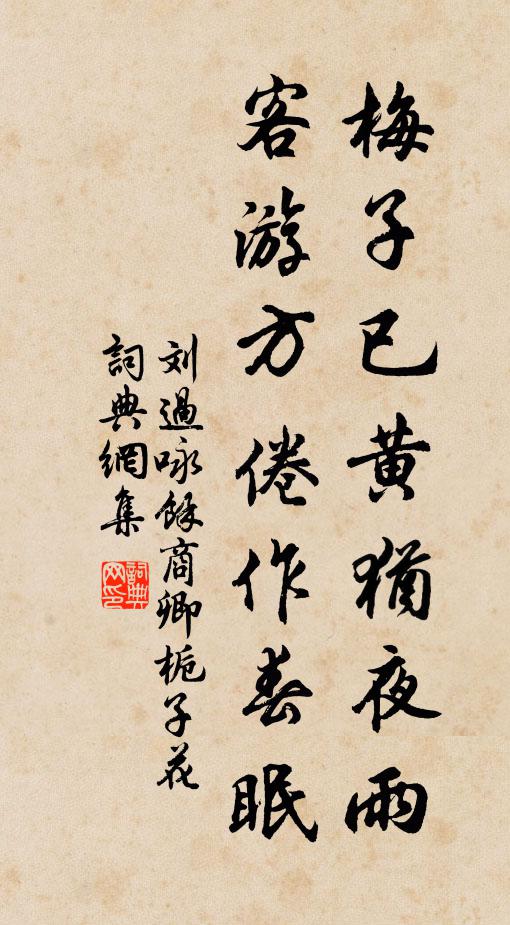 梅子已黄猶夜雨
客游方倦作春眠
刘過咏餘商卿栀子花
詞典網集
詞典网印